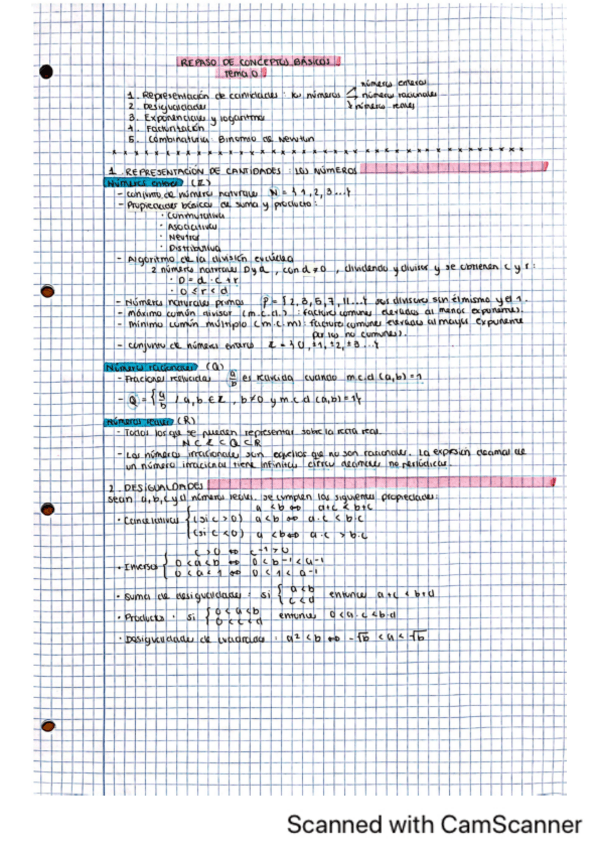 REPASO DE CONCEPTOS BÁSICOS
Tema 0
1. Representación de cantidades: los números números enteros
números racionales
números reales
2. Desigualdades
3. Exponenciales y logaritmos
4. Factorización
5. Combinatoria Binomio de Newton
1. REPRESENTACIÓN DE CANTIDADES: LOS NÚMEROS
Números enteros (Z)
- Conjunto de números naturales N = {1, 2, 3...}
- Propiedades básicas de suma y producto:
· Conmutativa
· Asociativa
· Neutro
· Distributiva
- Algoritmo de la división euclídea
2 números naturales D y d, con d ≠ 0, dividendo y divisor y se obtienen c y r:
· D = d · c + r
· 0 ≤ r < d
- Números naturales primos P = {2, 3, 5, 7, 11...} sus divisores son él mismo y el 1.
- máximo común divisor (m.c.d.): factores comunes elevados al menor exponente.
- mínimo común múltiplo (m.c.m): factores comunes elevados al mayor exponente
por los no comunes).
- conjunto de números enteros Z = {0, ±1, ±2, ±3...}
Números racionales (Q)
- Fracciones reducidas a/b es reducida cuando m.c.d (a,b) = 1
- Q = {a/b / a, b ∈ Z, b ≠ 0 y m.c.d (a,b) = 1}
Números reales (R)
- Todos los que se pueden representar sobre la recta real.
N ⊂ Z ⊂ Q ⊂ R
- Los números irracionales son aquellos que no son racionales. La expresión decimal de
un número irracional tiene infinitas cifras decimales no periódicas.
2. DESIGUALDADES
Sean a, b, c y d números reales. Se cumplen las siguientes propiedades:
a < b ⇔ a + c < b + c
· Cancelativas (si c > 0) a < b ⇔ a · c < b · c
(si c < 0) a < b ⇔ a · c > b · c
c > 0 ⇔ c⁻¹ > 0
· Inversos 0 < a < b ⇔ 0 < b⁻¹ < a⁻¹
0 < a < 1 ⇔ 0 < 1 < a⁻¹
· Suma de desigualdades: si { a < b
c < d entonces a + c < b + d
· Productos: si { 0 < a < b
0 < c < d entonces 0 < a · c < b · d
· Desigualdades de cuadrados: a² < b ⇔ -√b < a < √b
Scanned with CamScanner